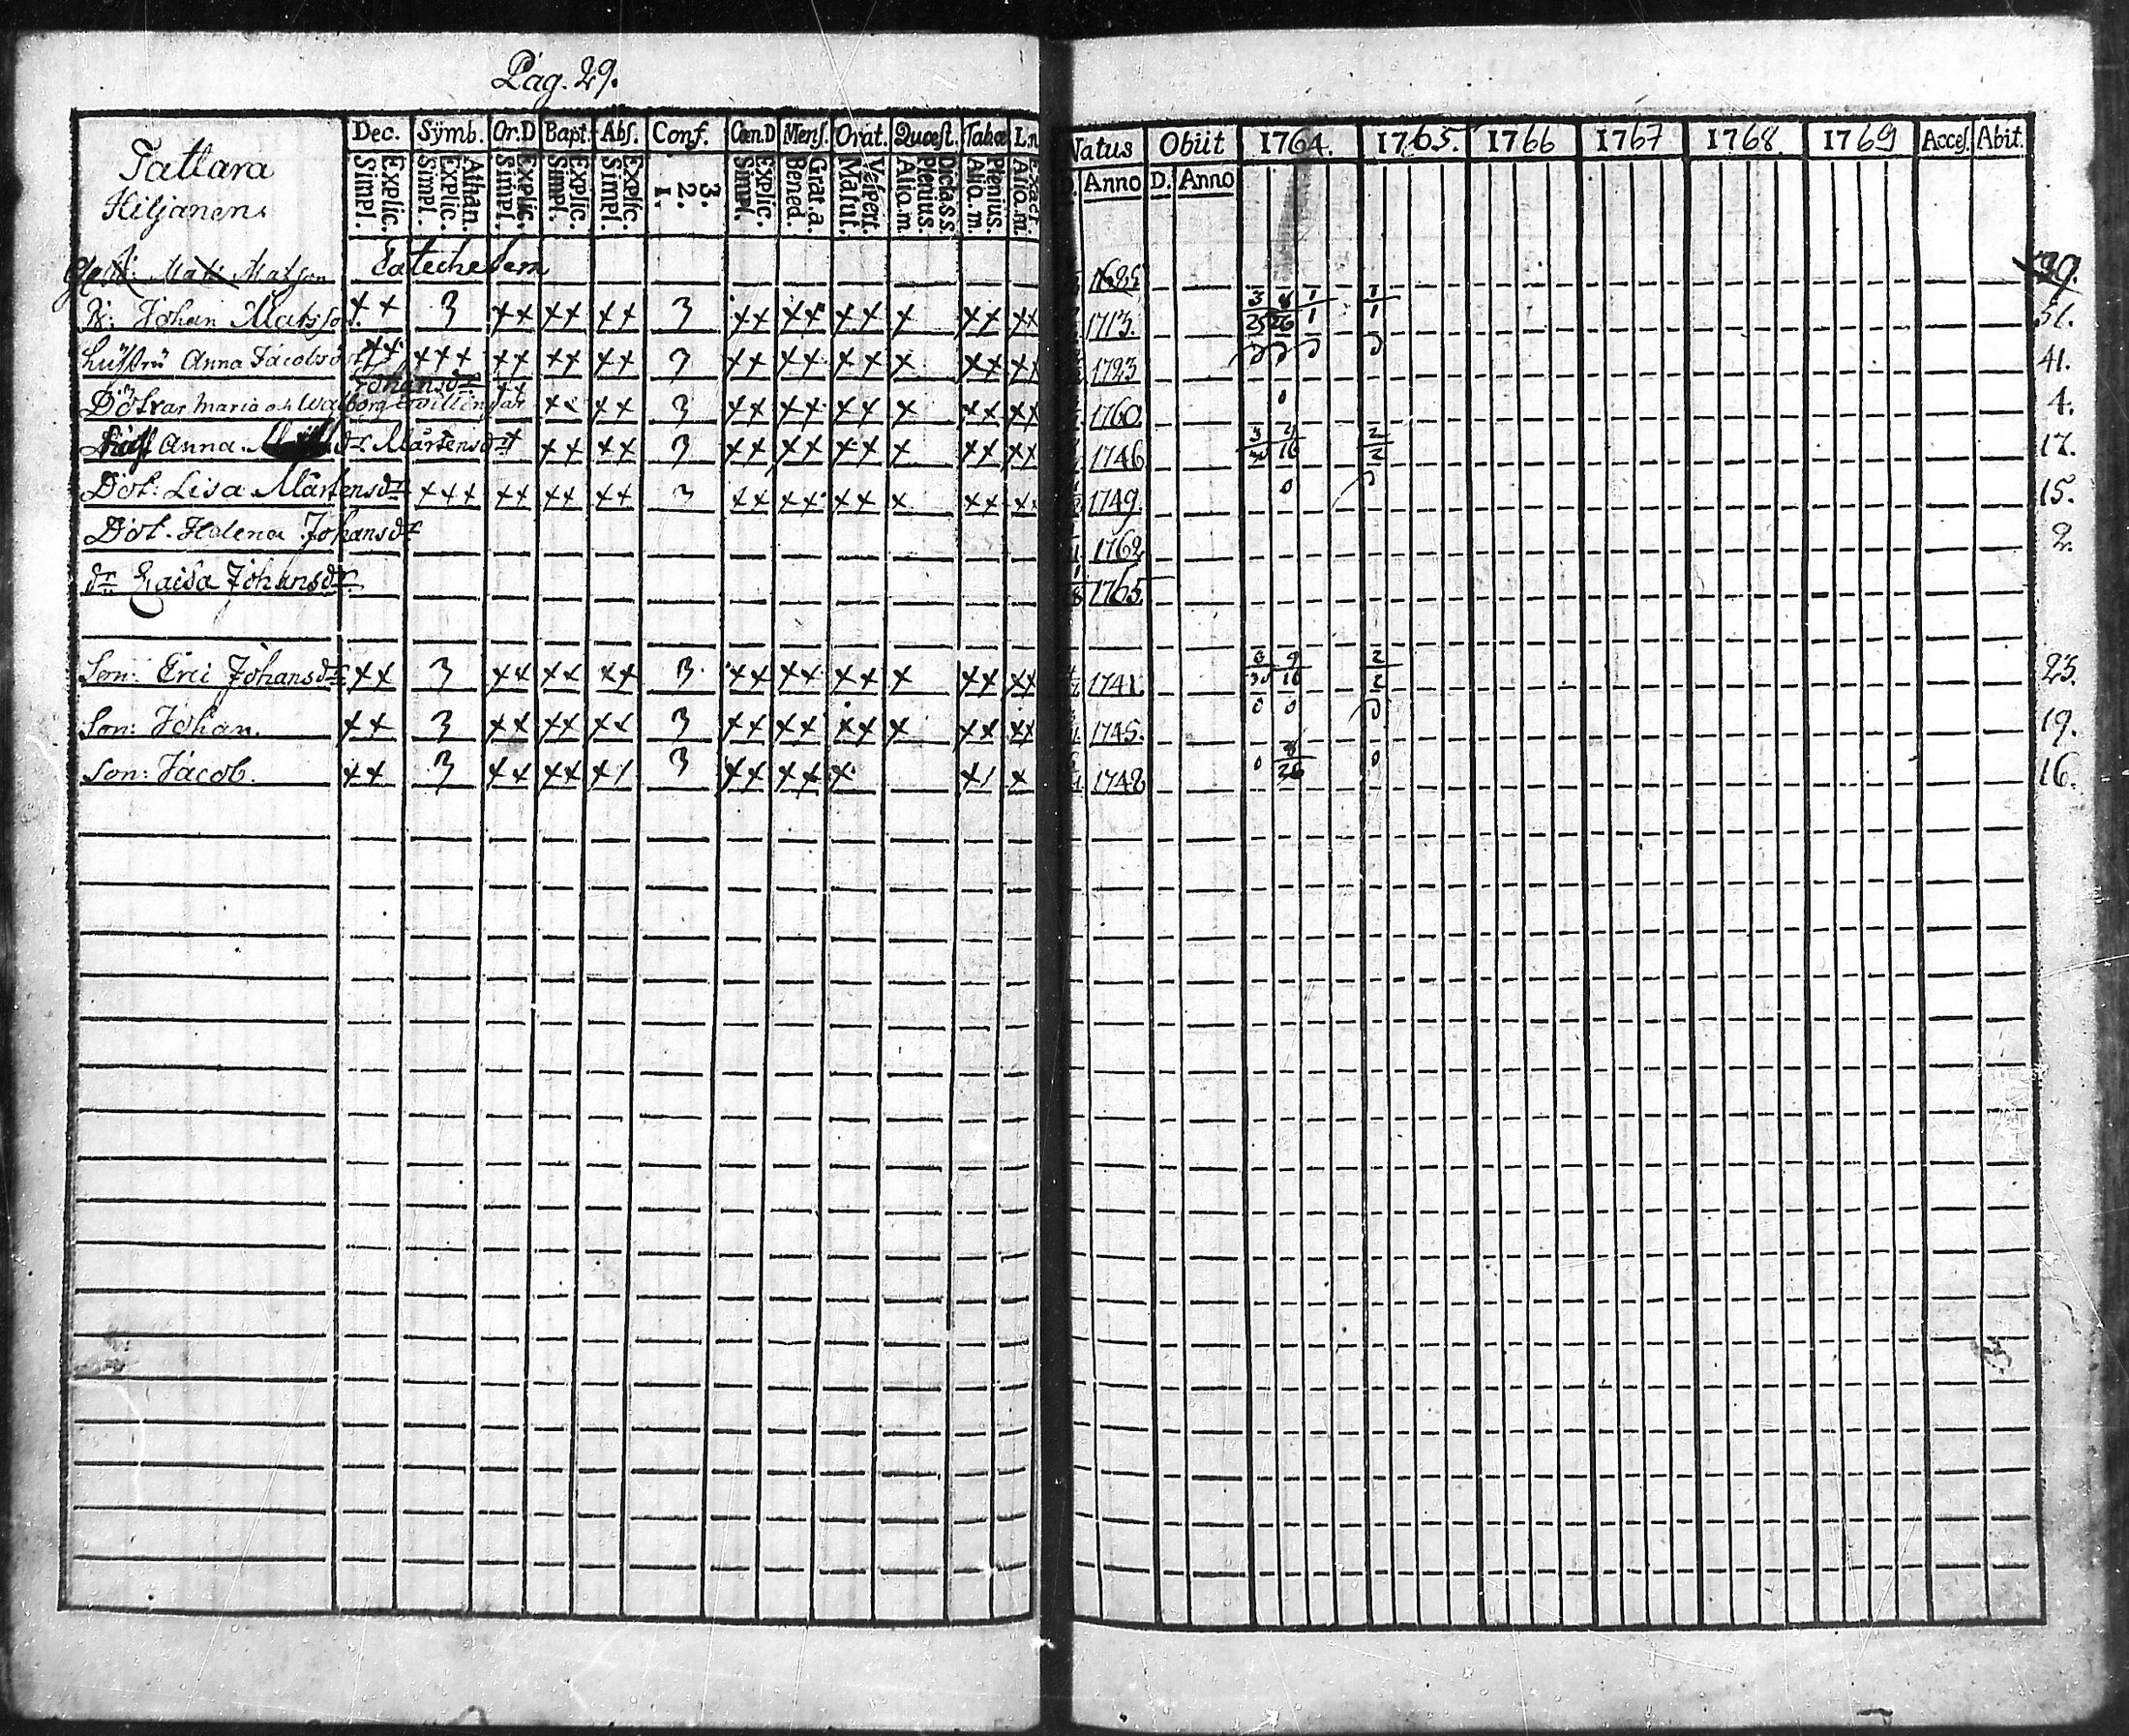 Pag. 29.
Tattara
Hiljanens
Dec. Sÿmb. Or.D Bapt. Abſ. Conf. Cœn.D Menſ. Orat. Quœſt. Tabœ L.n
Simpl. Explic. Simpl. Explic. Athan. Simpl. Explic. Simpl. Explic. Simpl. Explic. 1. 2. 3. Simpl. Explic. Bened. Grat.a. Matut. Veſpert. Alio.m Plenius. Dicta.s.s. Alio.m Plenius. Alio.m. Exact.
Natus Obiit 1764. 1765. 1766 1767 1768. 1769 Acceſ. Abit.
D. Anno D. Anno
Mats Matsson Catechesem 1685 79.
B: Johan Matsson. x x 3 x x x x x x 3 x x x x x x x x x x x 1713. 3/25 8/26 1/1 1/1 51.
hustru Anna Jacobsd x x x x x x x x x x x 3 x x x x x x x x x x x 1723 41.
Johansdr
Döttrar Maria och Walborg twillingar x x x x 3 x x x x x x x x x x x 1760. 0 4.
Anna Mårtensdr x x x x 3 x x x x x x x x x x x 1746 2/2 17.
Dot: Lisa Mårtensdr x x x x x x x x x 3 x x x x x x x x x x x 1749. 0 15.
Dot. Helena Johansdr 1762 2.
dr Caisa Johansdr 1765
Son: Eric Johansdr x x 3 x x x x x x 3 x x x x x x x x x x x 1741. 9/16 2/2 23.
Son: Johan. x x 3 x x x x x x 3 x x x x x x x x x x x 1745. 0 0 19.
Son: Jacob. x x 3 x x x x x 3 x x x x x x x 1748 0 8/26 0 16.